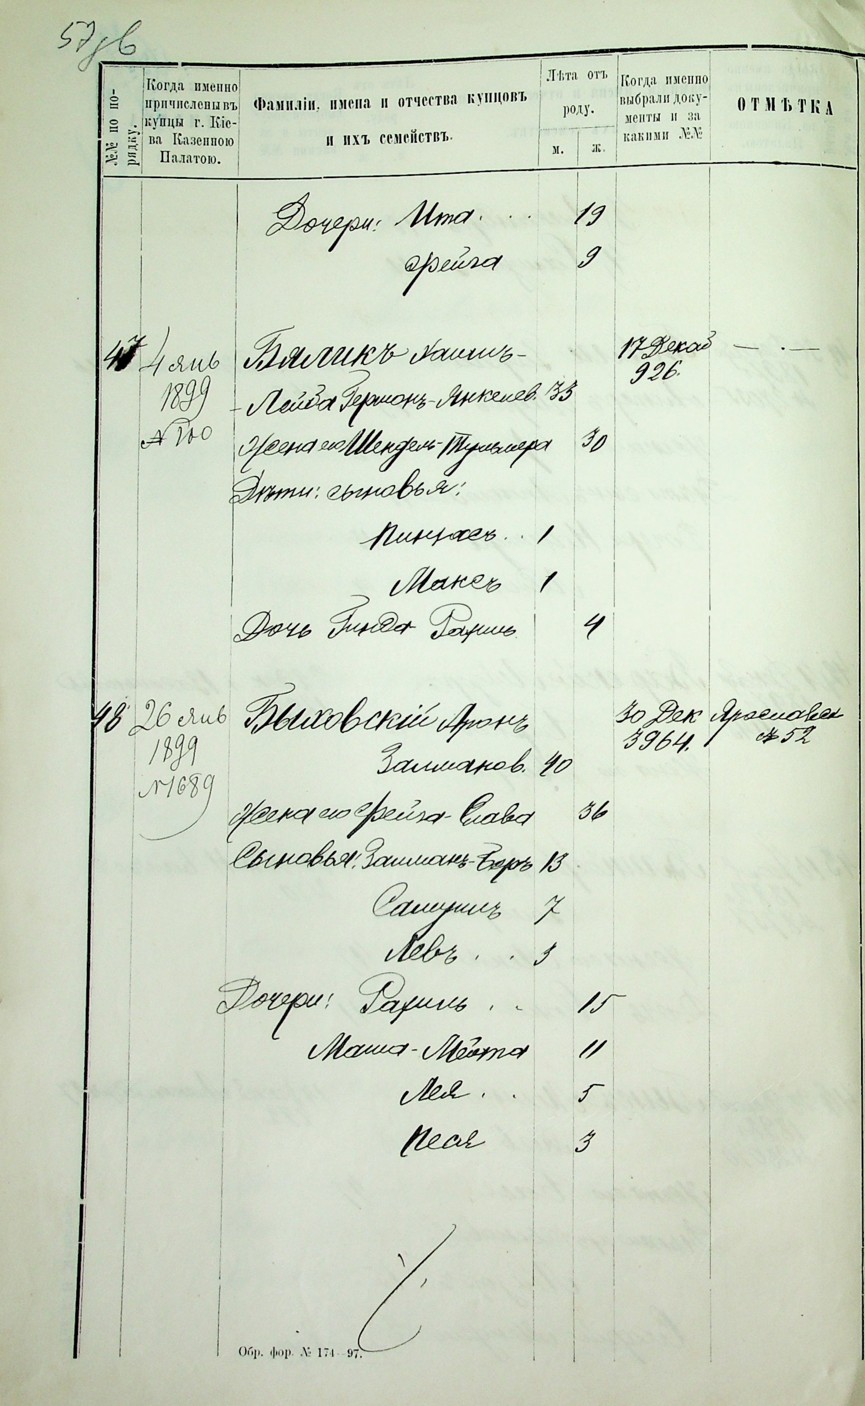 57 об
№№ по по-
рядку.
Когда именно
причислены въ
купцы г. Кіе-
ва Казенною
Палатою.
Фамиліи, имена и отчества купцовъ
и ихъ семействъ.
Лѣта отъ
роду.
м. ж.
Когда именно
выбрали доку-
менты и за
какими №№
ОТМѢТКА
Дочери: Ита . . . 19
Фейга 9
47 4 янь Бяликъ Хаимъ- 17 Декаб — . —
1899 926.
- Лейба Герионъ-Янкелев. 33
№ 100
Жена его Шендель- 30
Дѣти: сыновья:
Пинхасъ . . 1
Максъ 1
Дочь Гинда Рахиль 4
48 26 янь Быховскій Аронъ 30 Дек Ярославск
1899 3964. № 52
Залманов. 40
N 1689
Жена его Фейга-Слава 36
Сыновья: Залманъ-Беръ 13
Самуилъ 7
Левъ . . 3
Дочери: Рахиль . . 15
Маша- 11
Лея . . 5
Песя 3
Обр. фор. № 174—97.